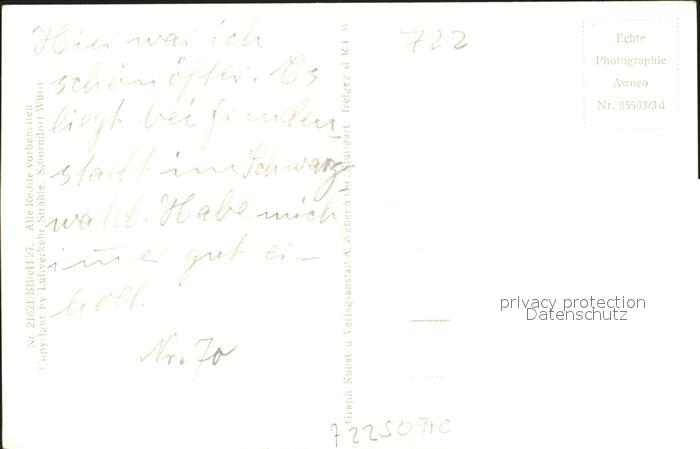 Hier war ich
schon öfter. Es
liegt bei Freuden
stadt im Schwarz-
wald. Habe mich
immer gut er-
holt.
Nr. 70
722
Echte
Photographie
Awuco
Nr. 85593/3d
Alle Rechte vorbehalten
Copyright by Luftverkehr Strähle, Schorndorf Württ
Graph Kunst u Verlagsanstalt A. Weber & Co. Stuttgart freigeg d R L M
privacy protection
Datenschutz
72250 FTC